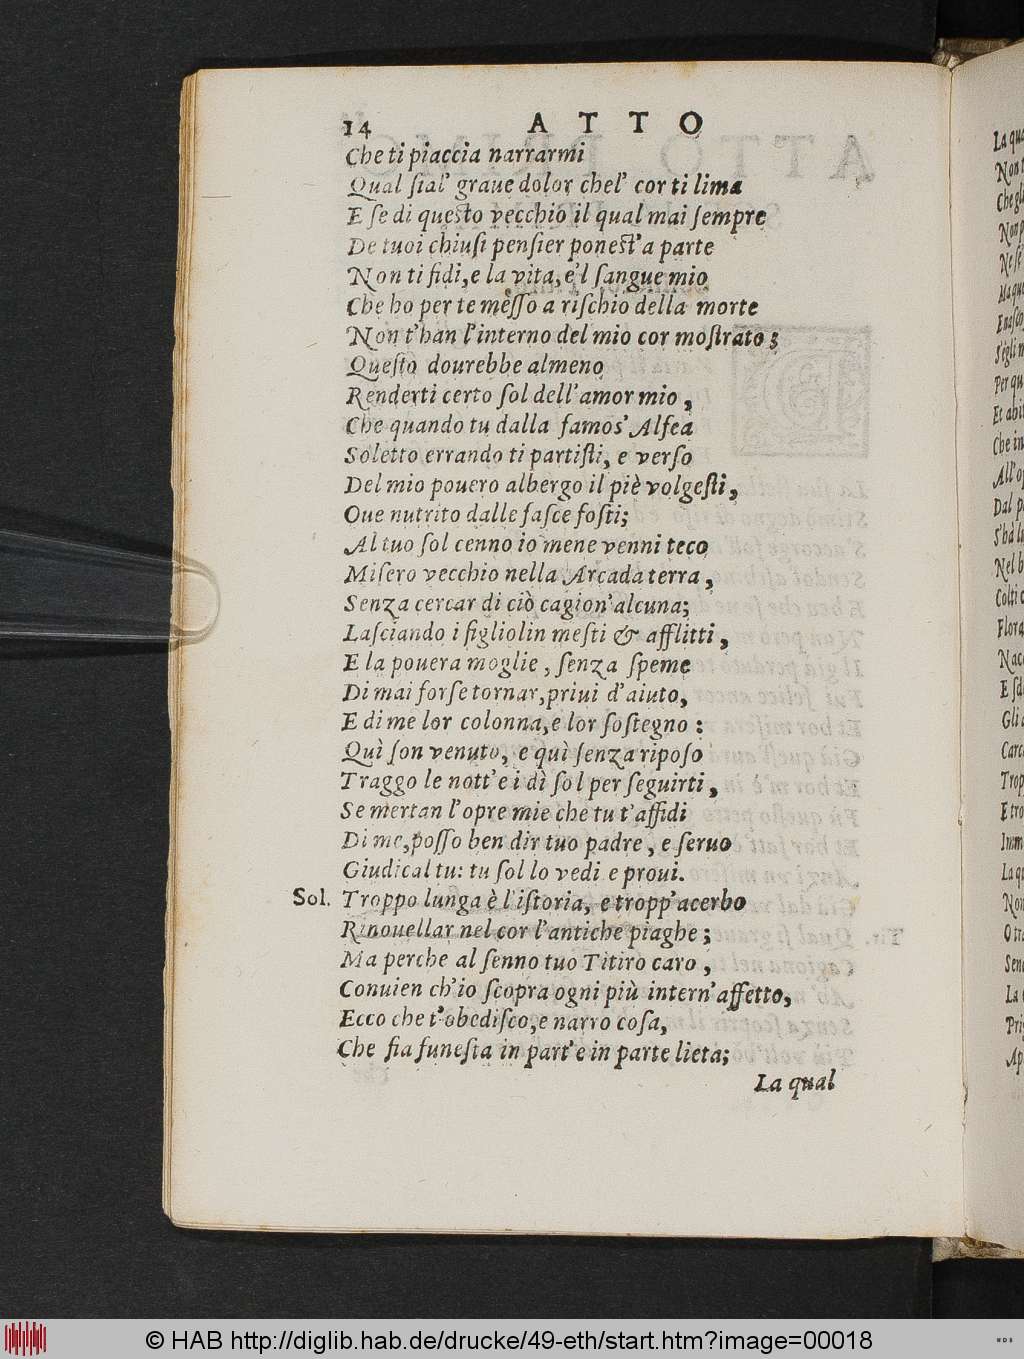 14 ATTO
Che ti piaccia narrarmi
Qual ſial' graue dolor chel' cor ti lima
E ſe di queſto vecchio il qual mai ſempre
De tuoi chiuſi penſier poneſt'a parte
Non ti fidi, e la vita, e'l ſangue mio
Che ho per te meſſo a riſchio della morte
Non t'han l'interno del mio cor moſtrato;
Queſto dourebbe almeno
Renderti certo ſol dell'amor mio,
Che quando tu dalla famos' Alfea
Soletto errando ti partiſti, e verſo
Del mio pouero albergo il piè volgeſti,
Oue nutrito dalle faſce foſti;
Al tuo ſol cenno io mene venni teco
Miſero vecchio nella Arcada terra,
Senza cercar di ciò cagion'alcuna;
Laſciando i figliolin meſti & afflitti,
E la pouera moglie, ſenza ſpeme
Di mai forſe tornar, priui d'aiuto,
E di me lor colonna, e lor ſoſtegno:
Quì ſon venuto, e quì ſenza ripoſo
Traggo le nott'e i dì ſol per ſeguirti,
Se mertan l'opre mie che tu t'affidi
Di me, poſſo ben dir tuo padre, e ſeruo
Giudical tu: tu ſol lo vedi e proui.
Sol. Troppo lunga è l'iſtoria, e tropp'acerbo
Rinouellar nel cor l'antiche piaghe;
Ma perche al ſenno tuo Titiro caro,
Conuien ch'io ſcopra ogni più intern'affetto,
Ecco che t'obediſco, e narro coſa,
Che fia funeſta in part'e in parte lieta;
La qual
© HAB http://diglib.hab.de/drucke/49-eth/start.htm?image=00018